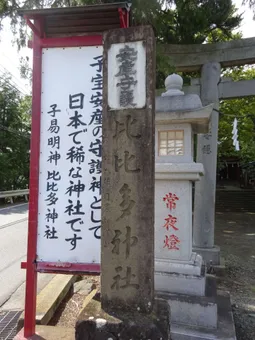 子宝安産の守護神として
日本で稀な神社です
子易明神 比比多神社
安産守護
比比多神社
常夜燈